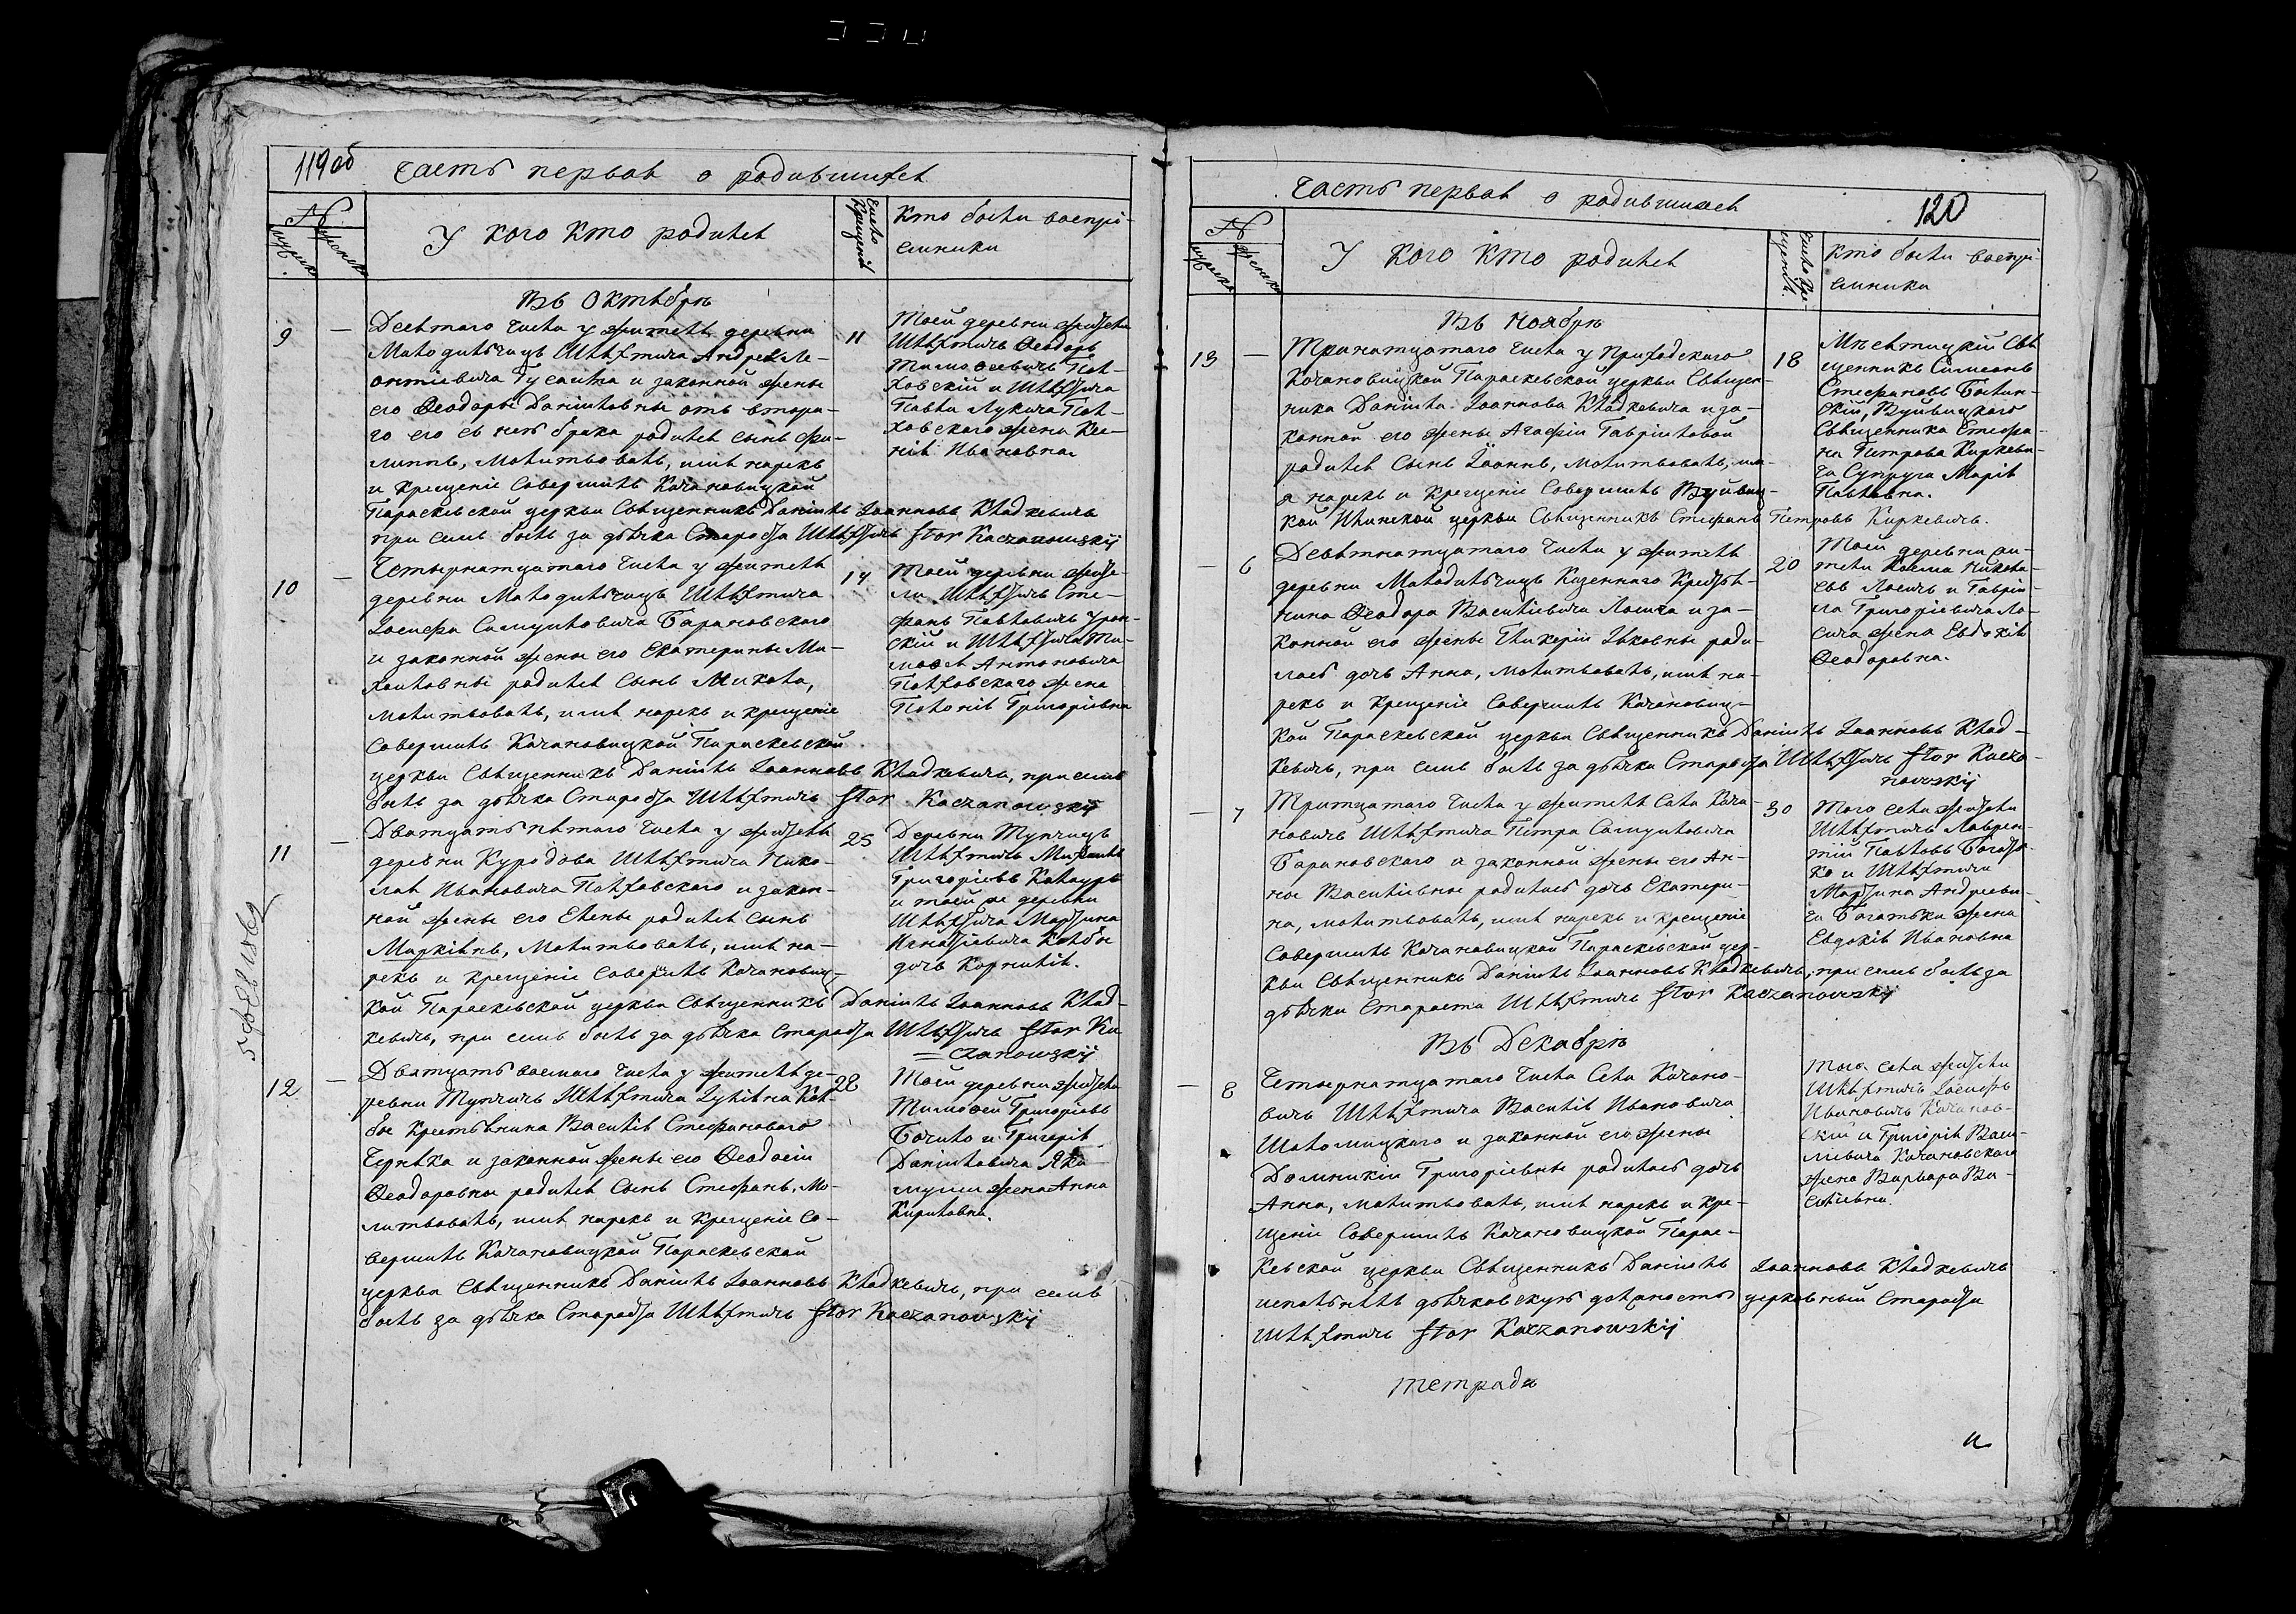 119об Часть первая о родившихся
№
У кого кто родился
Число крещенія
Кто были воспрі-
емники
Въ Октябрѣ
9 — Десятаго числа у жителя деревни
Малодитьчицъ Шляхтича Андрея Ле-
онтіевича Гусаита и законной жены
его Ѳеодоры Даниловны отъ втора-
го его съ нею брака родился сынъ Фи-
липпъ, молитвовалъ, имя нарекъ
и крещеніе совершилъ Качановицкой
Параскевской церкви Священникъ Даниилъ Іоанновъ Кладкевичь
при семъ былъ за дьячка Староста Шляхтичь Piotr Kaczanowskij
11 Тоей деревни житель
Шляхтичь Ѳеодоръ
Тимоѳеевичь Пол-
ховскій и Шляхтича
Павла Лукича Пол-
ховскаго жена Ксе-
нія Ивановна
10 — Четырнатцатаго числа у жителя
деревни Малодитьчицъ Шляхтича
Іосифа Самуиловича Барановскаго
и законной жены его Екатерины Ми-
хаиловны родился сынъ Микола,
молитвовалъ, имя нарекъ и крещеніе
совершилъ Качановицкой Параскевской
церкви Священникъ Даниилъ Іоанновъ Кладкевичь, при семъ
былъ за дьячка Староста Шляхтичь Piotr Kaczanowskij
14 Тоей деревни жите-
ли Шляхтичь Сте-
фанъ Павловичь
и Шляхтича Ти-
моѳея Антоновича
Полховскаго жена
Полонія Григоріевна
11 — Дватцать пятаго числа у жителя
деревни Куродова Шляхтича Нико-
лая Ивановича Полховскаго и закон-
ной жены его Елены родился сынъ
Маркіянъ, молитвовалъ, имя на-
рекъ и крещеніе совершилъ Качановиц-
кой Параскевской церкви Священникъ Даниилъ Іоанновъ Клад-
кевичь, при семъ былъ за дьячка Староста Шляхтичь Piotr Ka
=czanowskij
25 Деревни Тупчицъ
Шляхтичь Михаилъ
Григоріевъ Калауръ
и тоей же деревни
Шляхтича Мартина
Игнатіевича Колбы
дочь Корнилія.
12 — Дватцать восмаго числа у жителя де-
ревни Тупчичъ Шляхтича Луkіяна Кол-
бы крестьянина Василія Стефановаго
Черняка и законной жены его Ѳеодосіи
Ѳеодоровны родился сынъ Стефанъ, мо-
литвовалъ, имя нарекъ и крещеніе со-
вершилъ Качановицкой Параскевской
церкви Священникъ Даниилъ Іоанновъ Кладкевичь, при семъ
былъ за дьячка Староста Шляхтичь Piotr Kaczanowskij
28 Тоей деревни житель
Тимоѳей Григоріевъ
Бочило и Григорія
Даниловича Яки-
жена Анна
Кириловна.
Часть первая о родившихся 120
№
У кого кто родился
Число кре-
щенія
Кто были воспрі-
емники
Въ Ноябрѣ
13 — Тринатцатаго числа у приходскаго
Качановицкой Параскевской церкви Священ-
ника Даниила Іоаннова Кладкевича и за-
конной его жены Агафіи Гавріиловой
родился сынъ Іоаннъ, молитвовалъ, им-
я нарекъ и крещеніе совершилъ Вуйвиц-
кой Ильинской церкви Священникъ Стефанъ Петровъ Киркевичь.
18 Мѣстицкій Свя
щенникъ Симеонъ
Стефановъ
Вуйвицкаго
Священника Стефа-
на Петрова Киркеви-
ча супруга Марія
Павловна.
— 6 Девятнатцатаго числа у жителя
деревни Малодитьчицъ Казеннаго крестья-
нина Ѳеодора Василіевича Лосича и за-
конной его жены Гликеріи Яковны роди-
лась дочь Анна, молитвовалъ, имя на-
рекъ и крещеніе совершилъ Качановиц-
кой Параскевской церкви Священникъ Даниилъ Іоанновъ Клад-
кевичь, при семъ былъ за дьячка Староста Шляхтичь Piotr Kacza-
nowskij
20 Тоей деревни жи-
тели Косма Никола-
евъ Лосичь и Гаврі-
ла Григоріевича Ло-
сича жена Евдокія
Ѳеодоровна.
— 7 Тритцатаго числа у жителя села Кача-
новичь Шляхтича Петра Самуиловича
Барановскаго и законной жены его Ан-
ны Василіевны родилась дочь Екатери-
на, молитвовалъ, имя нарекъ и крещеніе
совершилъ Качановицкой Параскевской цер-
кви Священникъ Даниилъ Іоанновъ Кладкевичь, при семъ былъ за
дьячка Староста Шляхтичь Piotr Kaczanowskij
30 Того села житель
Шляхтичь Лаврен-
тій Павловъ Богать-
ко и Шляхтича
Мартина Андрееви-
ча Богатька жена
Евдокія Ивановна
Въ Декабрѣ
— 8 Четырнатцатаго числа села Качано-
вичь Шляхтича Василія Ивановича
Шоломицкаго и законной его жены
Доминикіи Григоріевны родилась дочь
Анна, молитвовалъ, имя нарекъ и кре-
щеніе совершилъ Качановицкой Парас-
кевской церкви Священникъ Даниилъ Іоанновъ Кладкевичь
исполнялъ дьячковскую должность церковный Староста
Шляхтичь Piotr Kaczanowskij
Того села житель
Шляхтичь Іосифъ
Ивановичь Качанов-
скій и Григорія Васи-
ліевича Качановскаго
жена Варвара Ва-
силіевна.
тетради